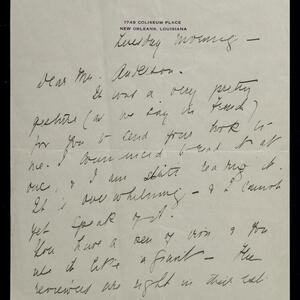 1749 COLISEUM PLACE
NEW ORLEANS, LOUISIANA
Tuesday morning —
Dear Mr. Anderson.
It was a very pretty
gesture (as we say in French)
for you to send your book to
me. I commenced to read it at
once, & I am still reading it.
It is overwhelming — & I cannot
yet speak of it.
You have a pen of iron & you
use it like a giant — The
reviewers are right in their